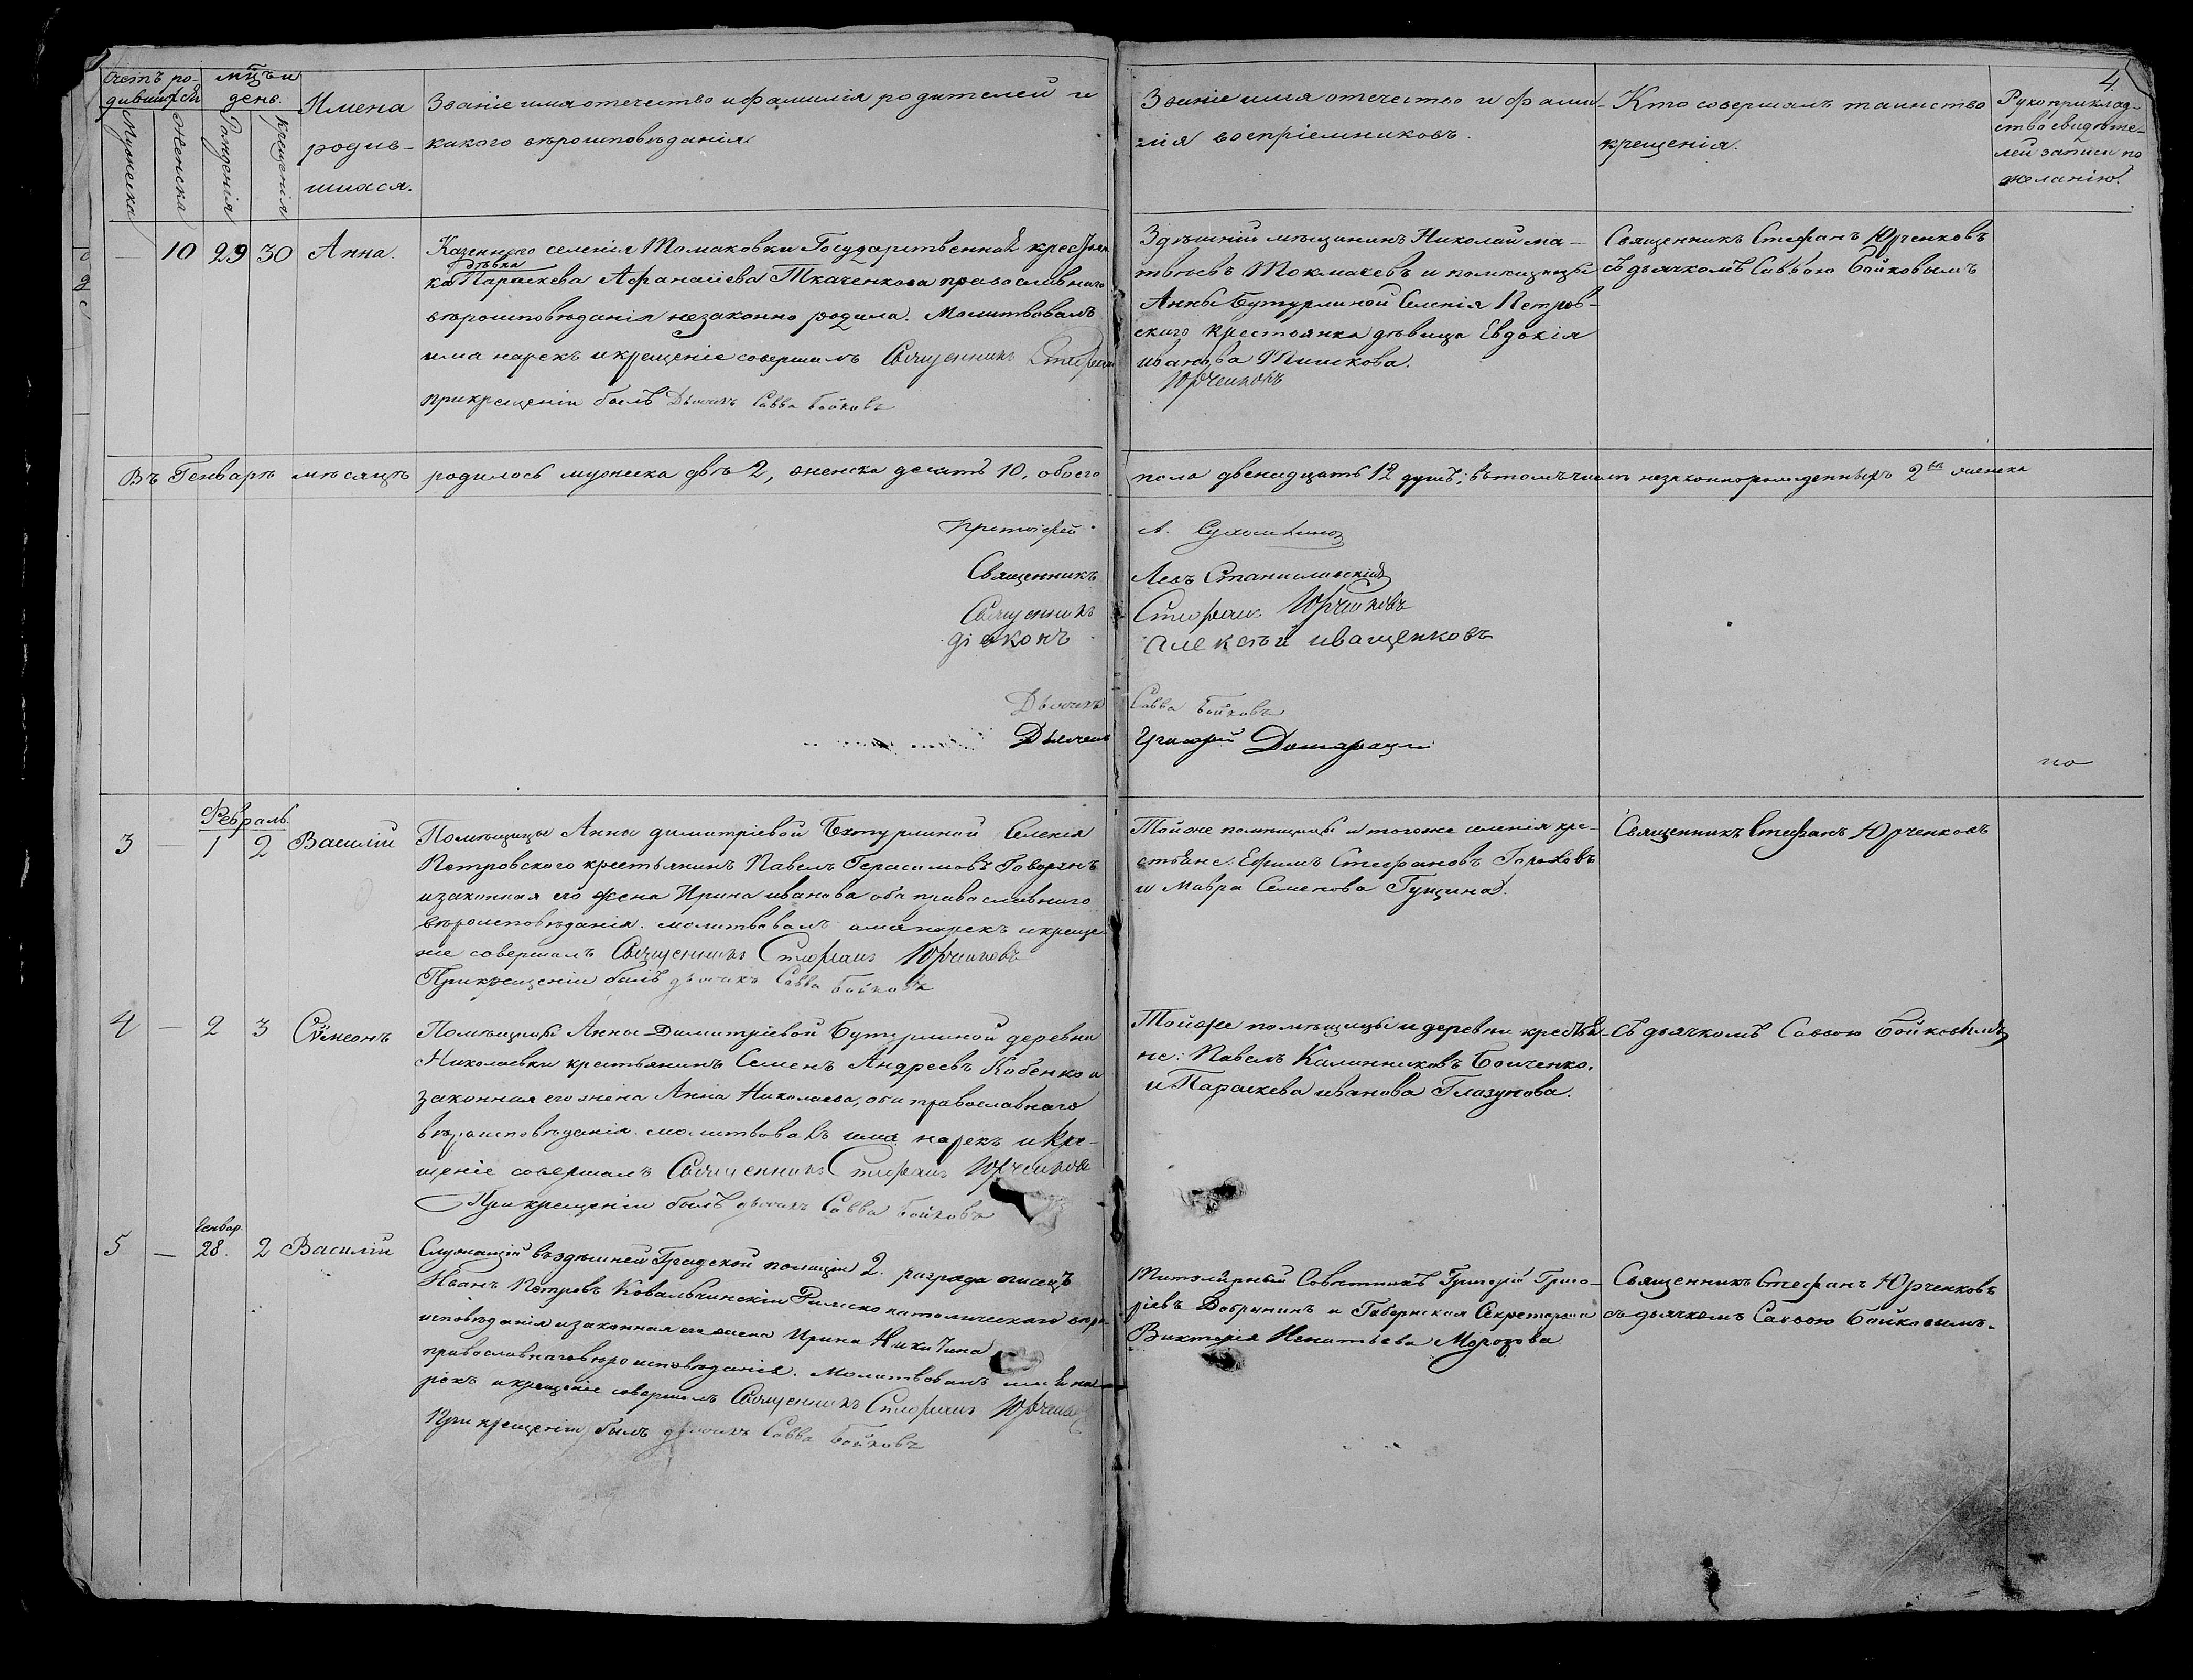 4
Счетъ ро-
дившихся
Мужеска
Женска
мц̃ъ и
день.
Рожденія
Крещенія
Имена
родив-
шихся.
Званіе имя отечество и фамилія родителей и
какого вѣроисповѣданія.
Званіе имя отечество и фами-
лія воспріемниковъ.
Кто совершалъ таинство
крещенія.
Рукоприклад-
ство свидѣте-
лей записи по
желанію.
— 10 29 30 Анна.
Казеннаго селенія Томаковки Государственной крестьян
дѣвка
ка Параскева Афанасіева Ткаченкова православнаго
вѣроисповѣданія незаконно родила. Молитвовалъ
имя нарекъ и крещеніе совершилъ Священникъ Стефанъ
Юрченковъ
при крещеніи былъ Дьячекъ Савва Бойковъ
Здѣшній мѣщанинъ Николай Ма-
твѣевъ Токмачевъ и помѣщицы
Анны Бутурлиной Селенія Петров-
скаго крестьянка дѣвица Евдокія
Иванова Тишкова.
Священникъ Стефанъ Юрченковъ
съ дьячкомъ Саввою Бойковымъ
Въ Генварѣ мѣсяцѣ родилось мужеска двѣ 2, женска десять 10, обоего пола двенадцать 12 душъ; въ томъ числѣ незаконнорожденныхъ 2 женска
Протоіерей
Священникъ Левъ Станиславскій
Священникъ Стефанъ Юрченковъ
діаконъ Алексѣй Иващенковъ
Дьячекъ Савва Бойковъ
Дьячекъ Григорій
по
Февраль.
3 — 1 2 Василій
Помѣщицы Анны Димитріевой Бутурлиной Селенія
Петровского крестьянинъ Павелъ Герасимовъ
и законная его жена Ирина Иванова оба православнаго
вѣроисповѣданія. молитвовалъ имя нарекъ и креще-
ніе совершалъ Священникъ Стефанъ Юрченковъ
При крещеніи былъ дьячекъ Савва Бойковъ
Той же помѣщицы и того же селенія кре-
стьяне: Ефимъ Стефановъ Гороховъ
и Мавра Семенова Гущина.
Священникъ Стефанъ Юрченковъ
4 — 2 3 Сѵмеонъ
Помѣщицы Анны Димитріевой Бутурлиной деревни
Николаевки крестьянинъ Семенъ Андреевъ Кобенко и
законная его жена Анна Николаева, оба православнаго
вѣроисповѣданія. молитвовалъ имя нарекъ и кре-
щеніе совершалъ Священникъ Стефанъ Юрченковъ
При крещеніи былъ дьячекъ Савва Бойковъ
Той же помѣщицы и деревни крестья-
не: Павелъ Калинниковъ Бойченко.
и Параскева Иванова Глазунова.
съ дьячкомъ Саввою Бойковымъ
Генвар.
5 — 28. 2 Василій
Служащій въ здѣшней Градской полиціи 2. разряда писецъ
Иванъ Петровъ Ковальчинскій Римско католическаго вѣро-
исповѣданія и законная его жена Ирина Никитина
православнаго вѣроисповѣданія. Молитвовалъ имя на-
рекъ и крещеніе совершилъ Священникъ Стефанъ Юрченковъ
При крещеніи былъ дьячекъ Савва Бойковъ
Титулярный Совѣтникъ Григорій Григо-
ріевъ Добрынинъ и Губернская Секретарша
Викторія Игнатьева Морозова
Священникъ Стефанъ Юрченковъ
съ дьячкомъ Саввою Бойковымъ.